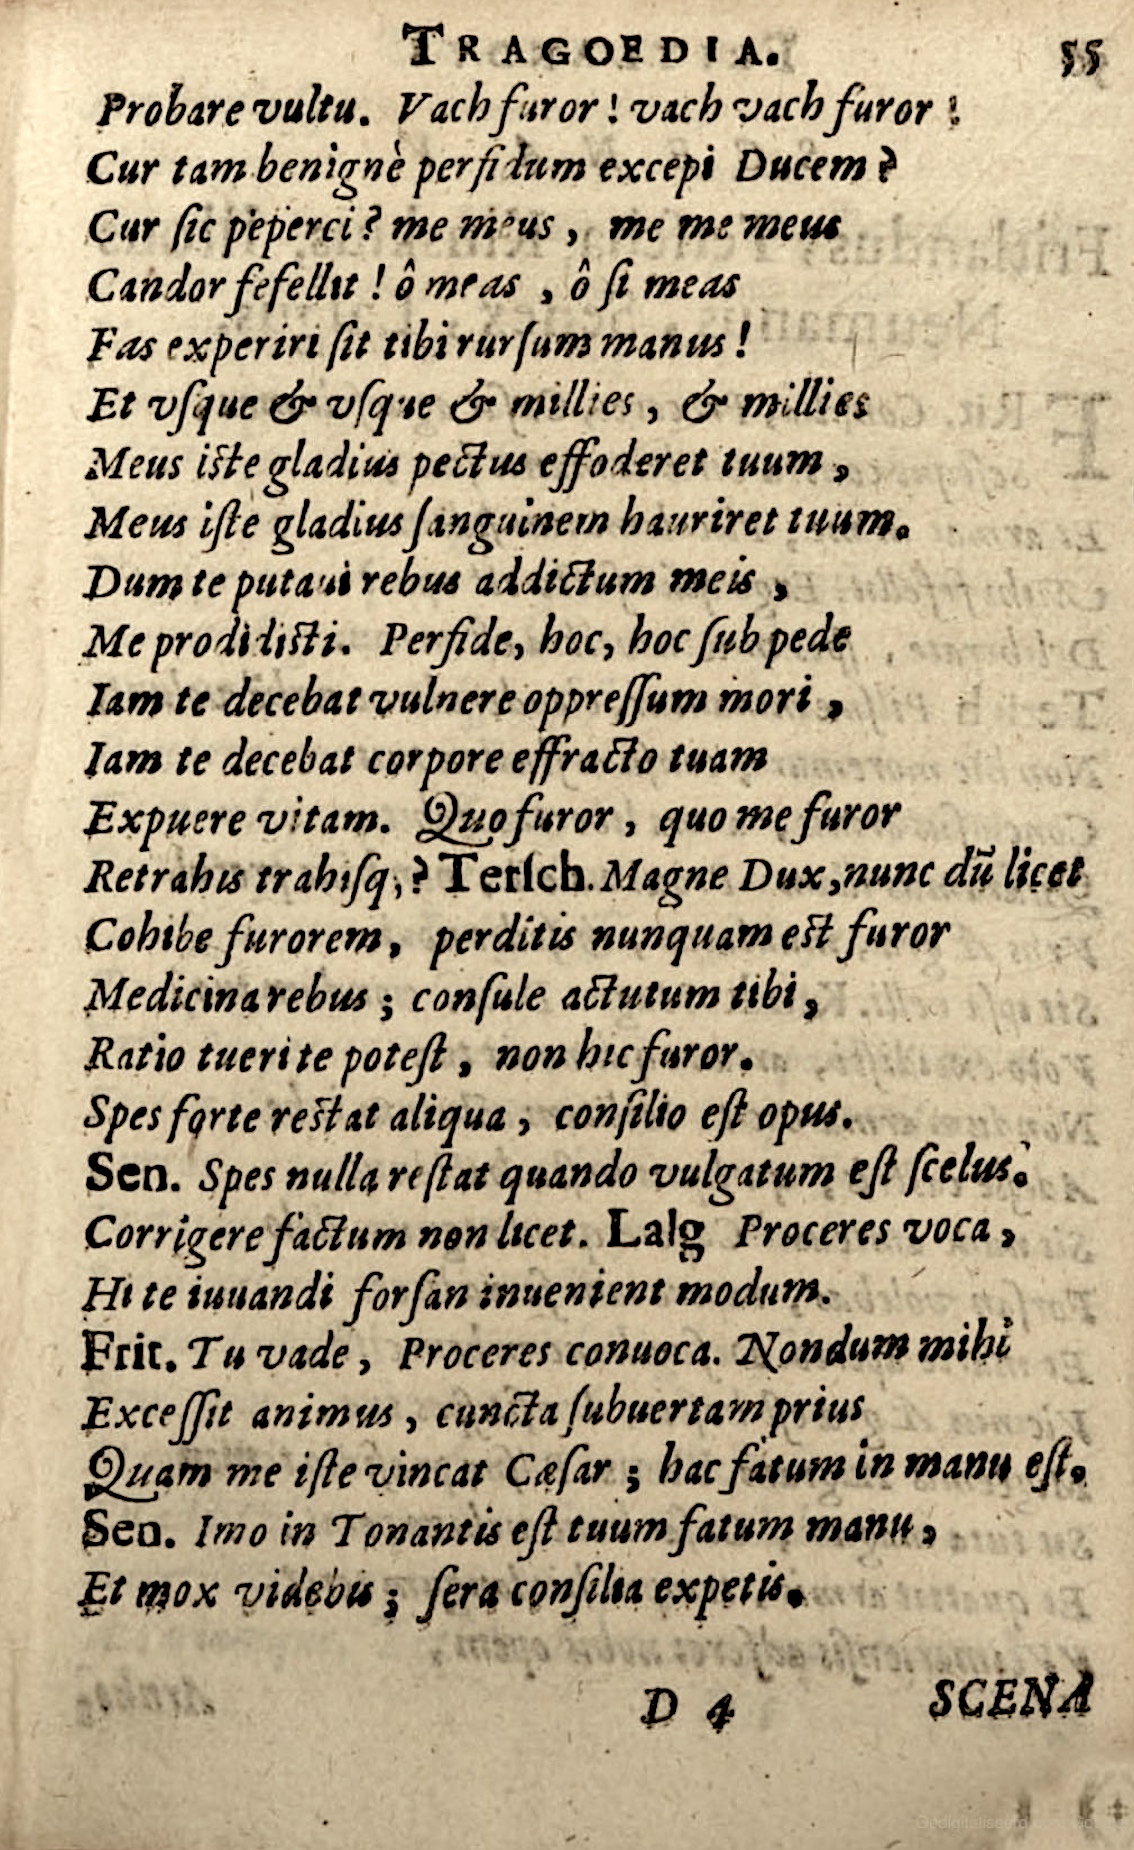 TRAGOEDIA. 55
Probare vultu. Vach furor! vach vach furor!
Cur tam benignè perfidum excepi Ducem?
Cur ſic peperci? me meus, me me meus
Candor fefellit! ô meas, ô ſi meas
Fas experiri ſit tibi rurſum manus!
Et vſque & vſque & millies, & millies
Meus iſte gladius pectus effoderet tuum,
Meus iſte gladius ſanguinem hauriret tuum.
Dum te putaui rebus addictum meis,
Me prodidiſti. Perfide, hoc, hoc ſub pede
Iam te decebat vulnere oppreſſum mori,
Iam te decebat corpore effracto tuam
Expuere vitam. Quo furor, quo me furor
Retrahis trahiſq;? Terſch. Magne Dux, nunc dū licet
Cohibe furorem, perditis nunquam eſt furor
Medicina rebus; conſule actutum tibi,
Ratio tueri te poteſt, non hic furor.
Spes forte reſtat aliqua, conſilio eſt opus.
Sen. Spes nulla reſtat quando vulgatum eſt ſcelus.
Corrigere factum non licet. Lalg Proceres voca,
Hi te iuuandi forſan inuenient modum.
Frit. Tu vade, Proceres conuoca. Nondum mihi
Exceſſit animus, cuncta ſubuertam prius
Quam me iſte vincat Cæſar; hac fatum in manu eſt.
Sen. Imo in Tonantis eſt tuum fatum manu,
Et mox videbis; ſera conſilia expetis.
D 4 SCENA